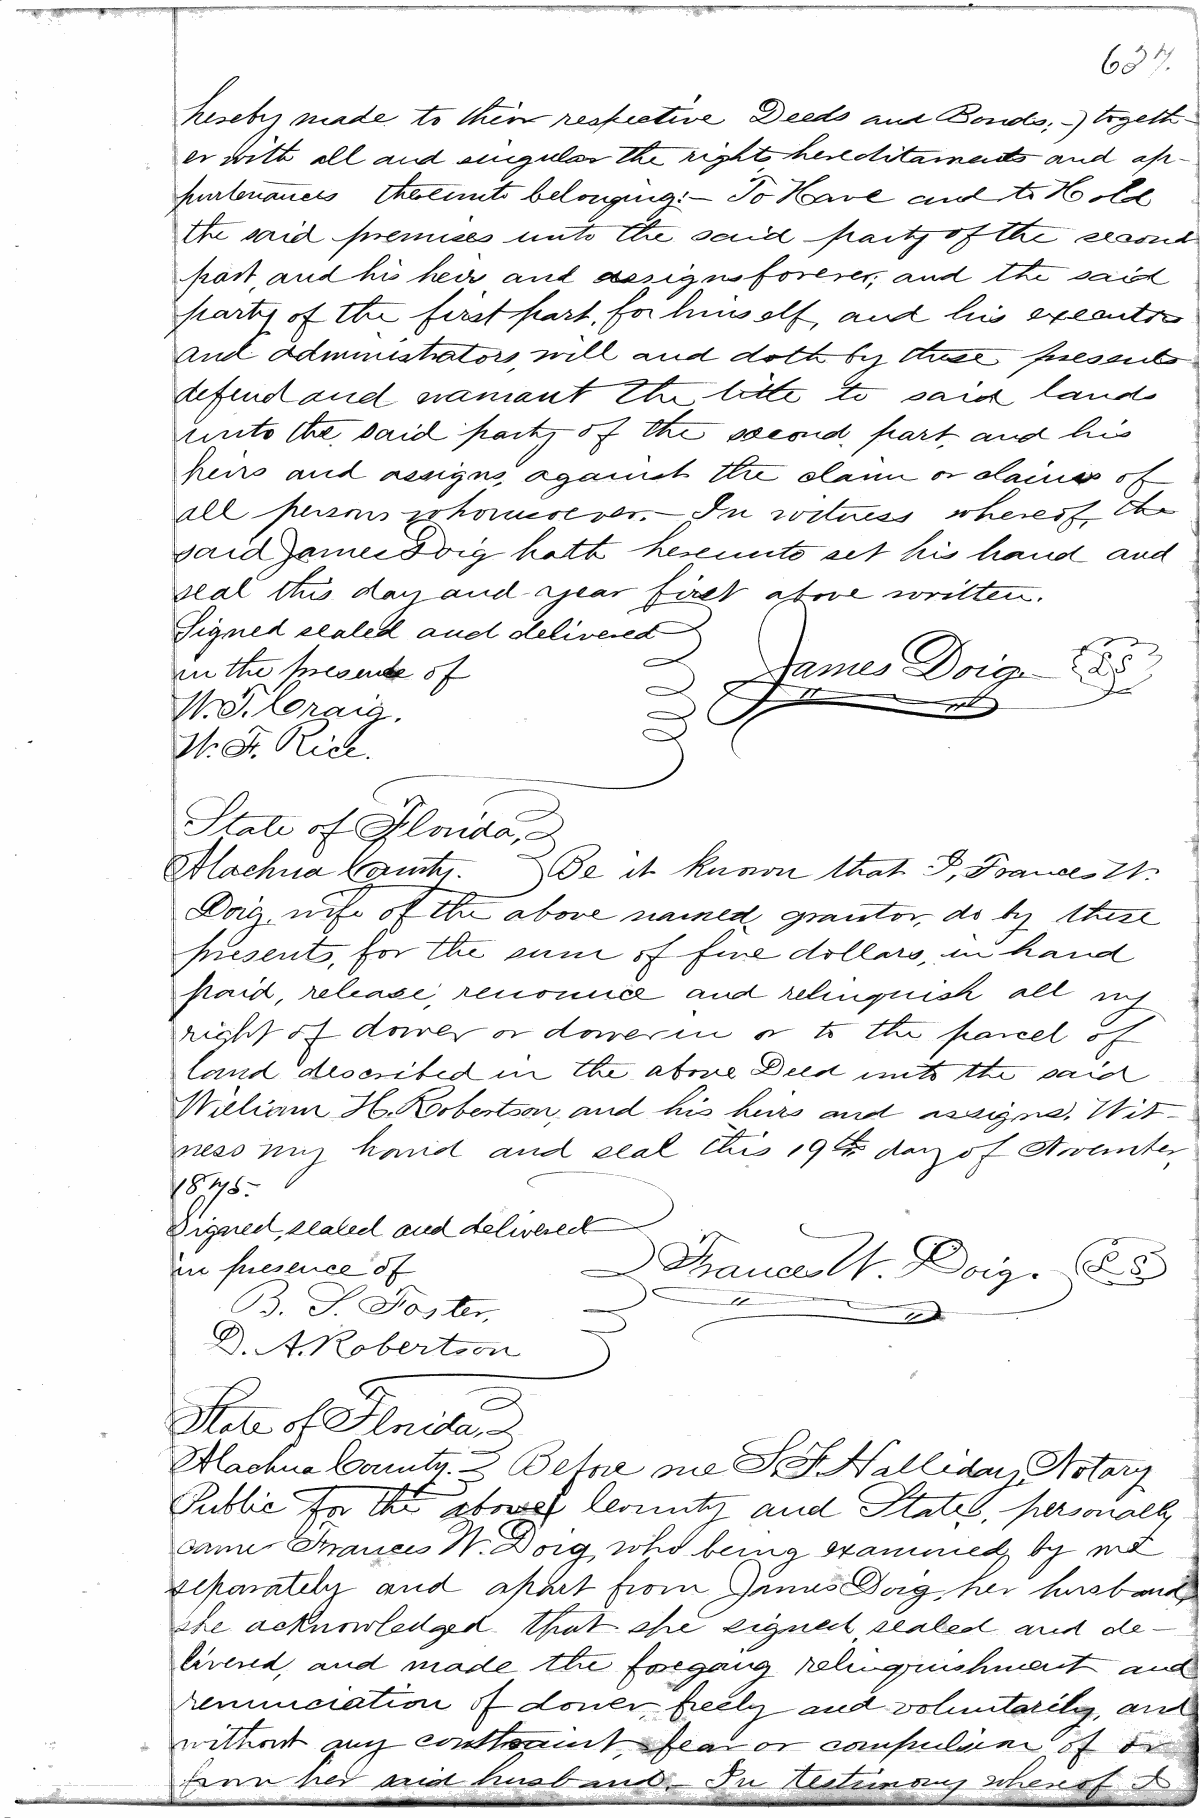 637.
hereby made to their respective Deeds and Bonds,-) togeth-
er with all and singular the rights hereditaments and ap-
purtenances thereunto belonging:- To Have and to Hold
the said premises unto the said party of the second
part, and his heirs and assigns forever; and the said
party of the first part, for himself, and his executors
and administrators, will and doth by these presents
defend and warrant the title to said lands
unto the said party of the second part, and his
heirs and assigns, against the claim or claims of
all persons whomsoever.- In witness whereof, the
said James Doig hath hereunto set his hand and
seal this day and year first above written.
Signed sealed and delivered
in the presence of
James Doig. LS
W. T. Craig.
W. F. Rice.
State of Florida,
Alachua County. Be it known that I, Frances W.
Doig, wife of the above named grantor, do by these
presents, for the sum of five dollars, in hand
paid, release, renounce and relinquish all my
right of dower or dower in or to the parcel of
land described in the above Deed unto the said
William H. Robertson, and his heirs and assigns. Wit-
ness my hand and seal this 19th day of November,
1875.
Signed, sealed and delivered
in presence of
Frances W. Doig. LS
B. S. Foster,
D. A. Robertson
State of Florida,
Alachua County. Before me S. F. Halliday, Notary
Public for the above County and State, personally
came Frances W. Doig, who being examined by me
separately and apart from James Doig, her husband,
she acknowledged that she signed, sealed and de-
livered, and made the foregoing relinquishment and
renunciation of dower, freely and voluntarily, and
without any constraint, fear or compulsion of or
from her said husband.- In testimony whereof I